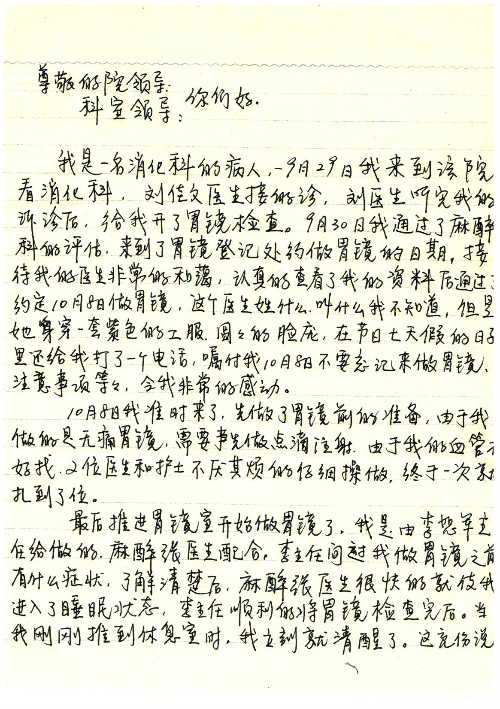 尊敬的院领导:
科室领导: 你们好.
我是一名消化科的病人,一9月29日我来到该院
看消化科, 刘佳文医生接的诊, 刘医生听完我的
诉诊后, 给我开了胃镜检查。9月30日我通过了麻醉
科的评估, 来到了胃镜登记处约做胃镜的日期。接
待我的医生非常的和蔼, 认真的查看了我的资料后通过了
约定10月8日做胃镜, 这个医生姓什么.叫什么我不知道, 但是
她身穿一套紫色的工服. 圆々的脸庞, 在节日七天假的日子
里还给我打了一个电话, 嘱付我10月8日不要忘记来做胃镜.
注意事项等々, 令我非常的感动。
10月8日我准时来了, 先做了胃镜前的准备, 由于我
做的是无痛胃镜, 需要事先做点滴注射. 由于我的血管
好找. 2位医生和护士不厌其烦的仔细操做, 终于一次
扎到了位。
最后推进胃镜室开始做胃镜了, 我是由李恕军主
任给做的. 麻醉张医生配合. 李主任问过我做胃镜之前
有什么症状, 了解清楚后, 麻醉张医生很快的就使我
进入了睡眠状态, 李主任顺利的将胃镜检查完后。当
我刚刚推到休息室时, 我立刻就清醒了。这充份说